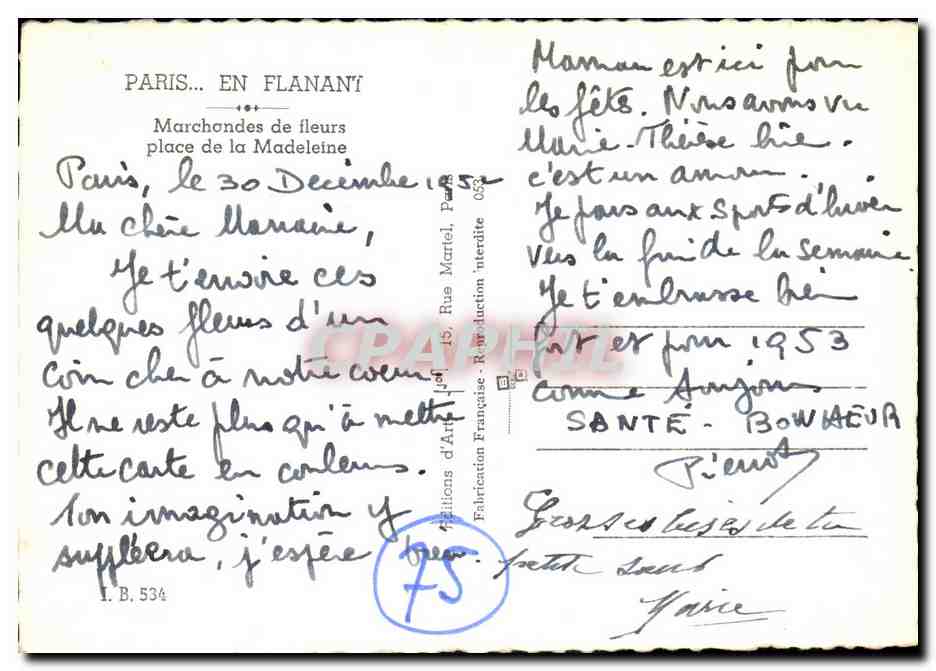 PARIS... EN FLANANT
Marchandes de fleurs
place de la Madeleine
Paris, le 30 Décembre 1952
Ma chère Marraine,
Je t'envoie ces
quelques fleurs d'un
coin cher à notre coeur.
Il ne reste plus qu'à mettre
cette carte en couleurs.
Ton imagination y
suppléera, j'espère bien.
I. B. 534
Editions d'Art 15, Rue Martel, Paris
Fabrication Française - Reproduction interdite 053
Maman est ici pour
les fêtes. Nous avons vu
Marie-Thérèse hier.
c'est un amour.
Je pars aux Sports d'hiver
vers la fin de la semaine.
Je t'embrasse bien
fort et pour 1953
comme toujours
SANTÉ - BONHEUR
Pierrot
Grosses bises de ta
petite
Marie
75
CPAPHIL